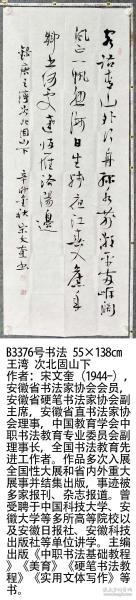 客路青山外行舟綠水前潮平兩岸闊
風正一帆懸海日生殘夜江春入舊年
鄉書何處達歸雁洛陽邊
唐王灣次北固山下 辛卯 秋宋文奎書
B3376号书法 55×138cm
王湾 次北固山下
作者：宋文奎（1944-），
安徽省书法家协会会员，
安徽省硬笔书法家协会副
主席，安徽省直书法家协
会理事，中国教育学会中
职书法教育专业委员会副
理事长，全国书法教育先
进工作者。作品多次入展
全国性大展和省内外重大
展事并结集出版，事迹被
多家报刊、杂志报道。曾
受聘于中国科技大学、安
徽大学等多所高等院校以
及安徽日报社、安徽科技
出版社等单位讲学，主编
出版《中职书法基础教程
》《美育》《硬笔书法教
程》《实用文体写作》等
书。